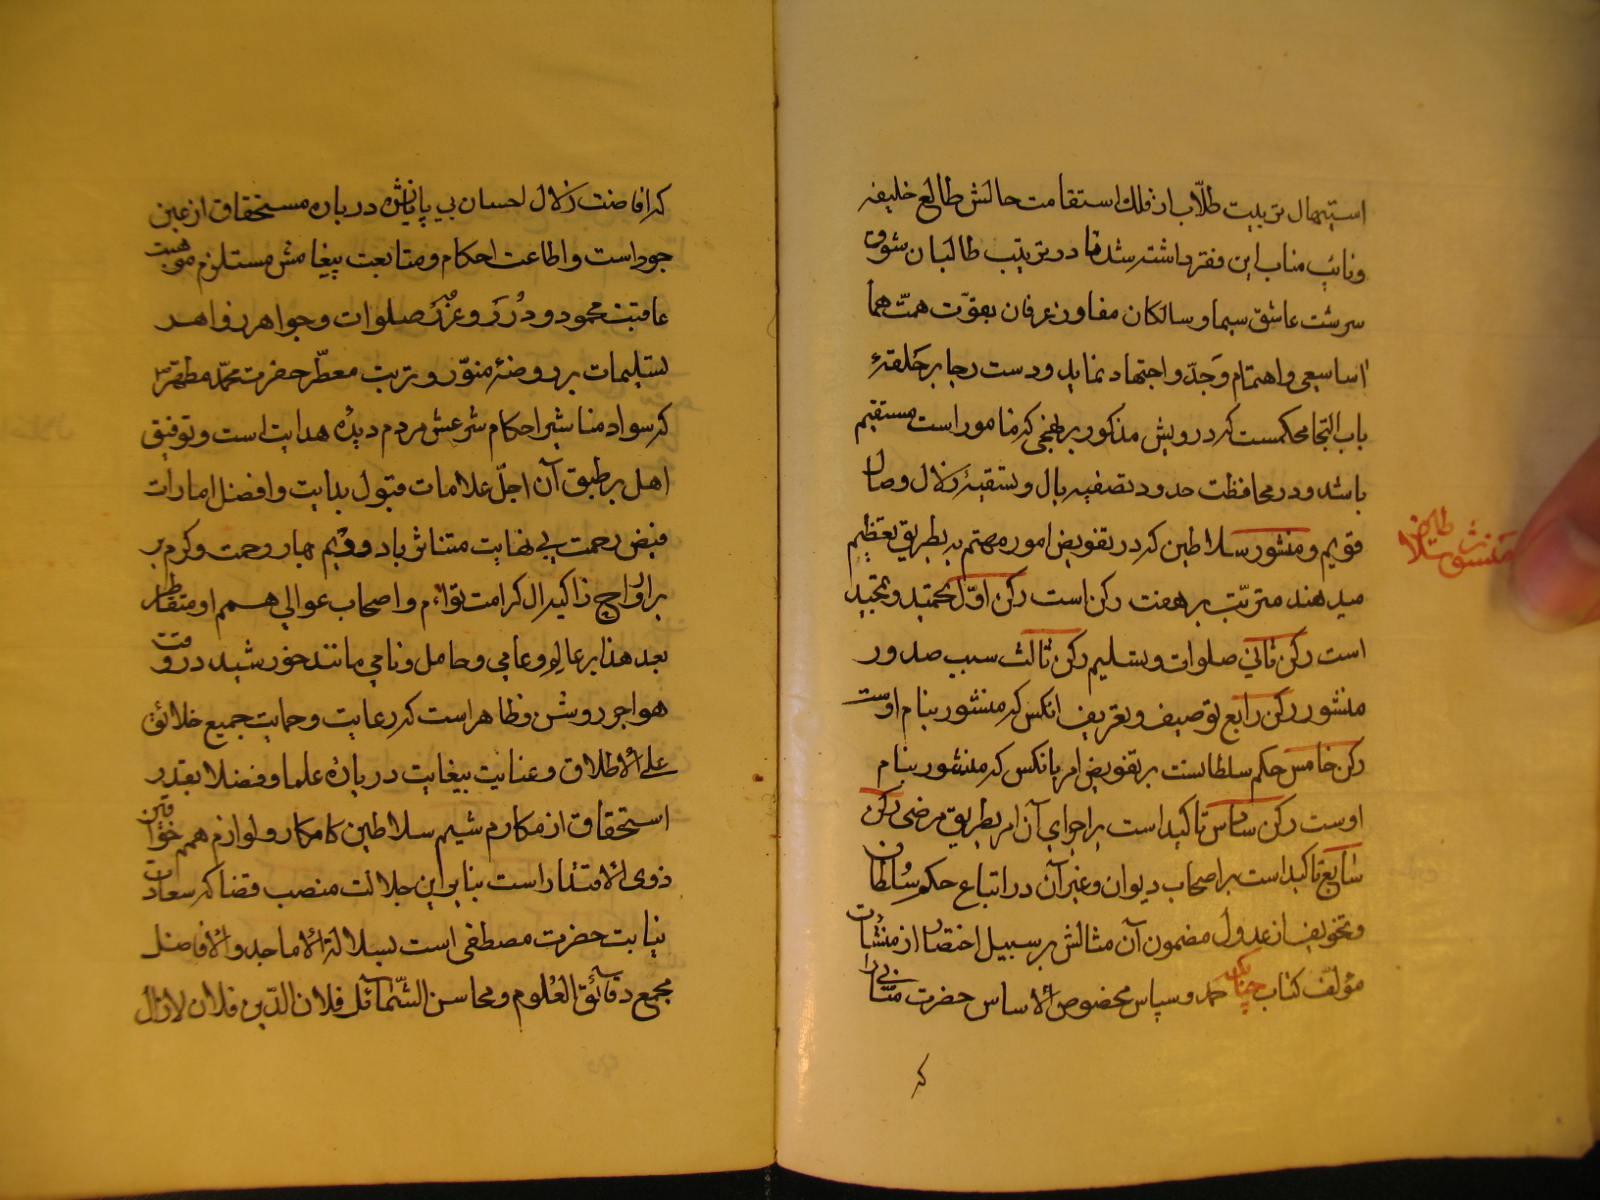 استیهال تربیت طلّاب از فلك استقامت حالش طالع خلیفه
ونائب مناب این فقیر داشته شد تا در تربیت طالبان شوق
سرشت عاشق سیما و سالکان مفاوز عرفان بقوّت همّت هما
اسا سعی و اهتمام وجدّ واجتهاد نماید ودست رجا بر حلقهٔ
باب التجا محکمست که درویش مذکور بر نهجی که مامور است مستقیم
باشد ودر محافظت حدود تصفیه بال وتنقیهٔ زلال وصال
منشور سلاطین
قویم و منشور سلاطین که در تفویض امور مهتم به بطریق تعظیم
میدهند مترتب بر هفت رکن است رکن اوّل تحمید وتمجید
است رکن ثانی صلوات وتسلیم رکن ثالث سبب صدور
منشور رکن رابع توصیف وتعریف انکس که منشور بنام اوست
رکن خامس حکم سلطانست بر تفویض امر بانکس که منشور بنام
اوست رکن سادس تاکید است بر اجرای آن امر بطریق مرضی رکن
سابع تاکید است بر اصحاب دیوان وغیر آن در اتباع حکم سلطان
وتخویف از عدول مضمون آن مثالش بر سبیل اختصار از منشآت
مؤلف کتاب چنانکه حمد وسپاس مخصوص الاساس حضرت
که
که افاضت زلال احسان بی پایانش درباره مستحقان از عین
جود است واطاعت احکام ومتابعت پیغامش مستلزم موهبت
عاقبت محمود و دُرَر و غُرَر صلوات وجواهر زواهر
تسلیمات بر روضهٔ منوّر وتربت معطّر حضرت محمّد مطهّر
که سواد مناشیر احکام شرعش مردم دیدهٔ هدایت است وتوفیق
اهل بر طبق آن اجلّ علامات قبول بدایت وافضل امارات
فیض رحمت بی نهایت متناثر باد و دیم بهار رحمت وکرم بر
ارواح زاکیه آل کرامت توام واصحاب عوالی همم او متقاطر
بعد هذا بر عالِم وعامی وخامل ونامی مانند خورشید در وقت
هواجر روشن وظاهر است که رعایت وحمایت جمیع خلائق
علی الاطلاق وعنایت بیغایت دربارهٔ علما وفضلا بقدر
استحقاق از مکارم شیم سلاطین کامکار ولوازم همم خواقین
ذوی الاقتدار است بنابراین جلالت منصب قضا که سعادت
نیابت حضرت مصطفی است بسلالة الاماجد والافاضل
مجمع دقائق العُلوم ومحاسن الشّمائل فلان الدّین فلان لازال